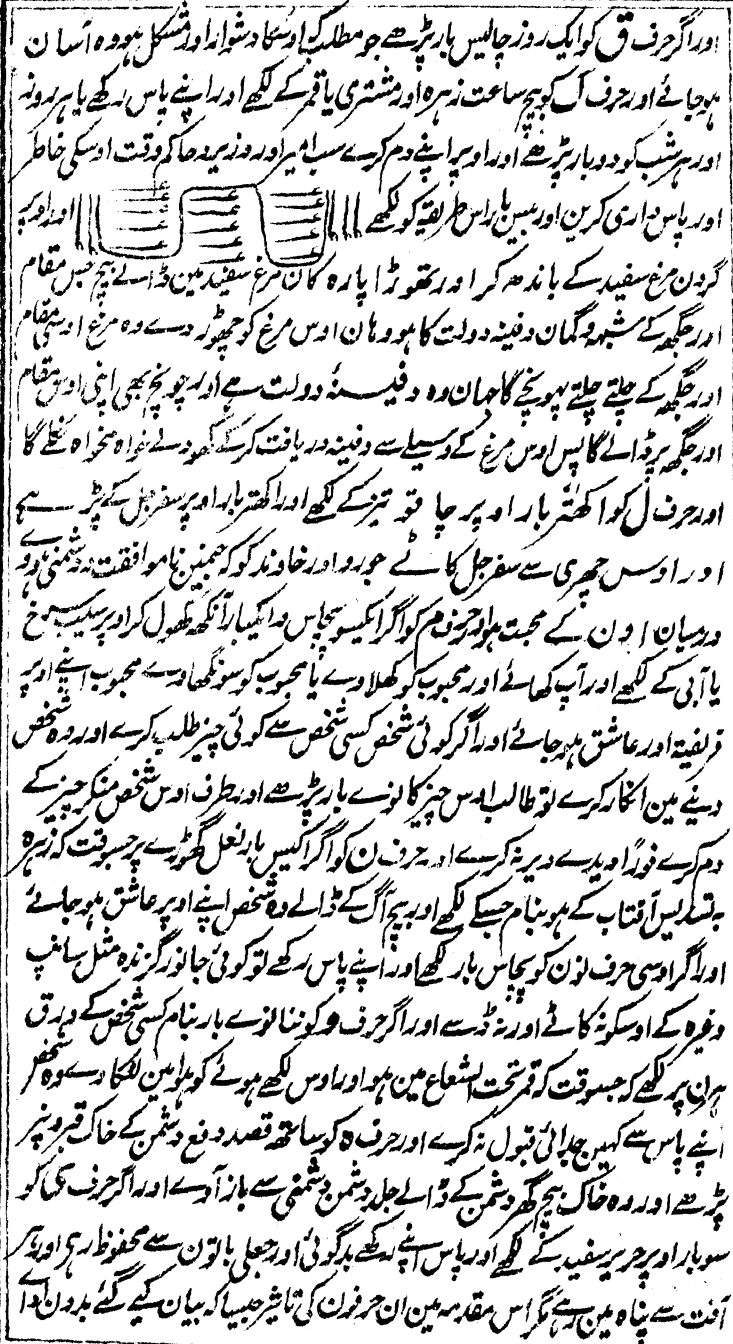 اور اگر حرف ق کو ایک روز چالیس بار پڑھے جو مطلب کہ اوسکا دشوار اور مشکل ہو وہ آسان
ہو جائے اور حرف ک کو بیچ ساعت زہرہ اور مشتری یا قمر کے لکھے اور اپنے پاس رکھے یا ہر روز
اور ہر شب کو دو بار پڑھے اور اوپر اپنے دم کرے سب امیر اور وزیر و حاکم وقت اوسکی خاطر
اور پاس داری کرین اور بیس بار اس طریقہ کو لکھے اور اوپر
گردن مرغ سفید کے باندھ کر اور تھوڑا پارہ کان مرغ سفید مین ڈالے بیچ جس مقام
اور جگھ کے شبہہ و گمان دفینہ دولت کا ہو وہان اوس مرغ کو چھوڑ دے وہ مرغ اوسی مقام
اور جگھ کے چلتے چلتے پہونچے گا جہان وہ دفینۂ دولت ہے اور چونچ بھی اپنی اوس مقام
اور جگھ پر ڈالے گا پس اوس مرغ کے وسیلے سے دفینہ دریافت کرکے کھود لے خواہ مخواہ نکلے گا
اور حرف ل کو اکھتر بار اوپر چاقو تیز کے لکھے اور اکھتر بار اوپر سفرجل کے پڑھے
اور اوس چھری سے سفرجل کاٹے جورو اور خاوند کو کہ جنمین ناموافقت و دشمنی ہووے
درمیان اون کے محبت ہو اور حرف م کو اگر ایکسو پچاس و ایکبار آنکھ کھول کر اوپر سیب سرخ
یا آبی کے لکھے اور آپ کھائے اور محبوب کو کھلاوے یا محبوب کو سونگھاوے محبوب اپنے اوپر
فریفتہ اور عاشق ہو جائے اور اگر کوئی شخص کسی شخص سے کوئی چیز طلب کرے اور وہ شخص
دینے مین انکار کرے تو طالب اوس چیز کا نوے بار پڑھے اور طرف اوس شخص منکر چیز کے
دم کرے فوراً دیدے دیر نہ کرے اور حرف ن کو اگر اکیس بار نعل گھوڑے پر جسوقت کہ زہرہ
بتسدیس آفتاب کے ہو بنام جسکے لکھے اور بیچ آگ کے ڈالے وہ شخص اپنے اوپر عاشق ہو جائے
اور اگر اوسی حرف نون کو پچاس بار لکھے اور اپنے پاس رکھے تو کوئی جانور گزندہ مثل سانپ
وغیرہ کے اوسکو نہ کاٹے اور نہ ڈسے اور اگر حرف و کو ننانوے بار بنام کسی شخص کے ورق
ہرن پر لکھے کہ جسوقت کہ قمر تحت الشعاع مین ہو اور اوس لکھے ہوئے کو ہوا مین لٹکا دے وہ شخص
اپنے پاس سے کہین جدائی قبول نہ کرے اور حرف ہ کو ساتھ قصد دفع دشمن کے خاک قبر پر
پڑھے اور وہ خاک بیچ گھر دشمن کے ڈالے جلد دشمن دشمنی سے باز آوے اور اگر حرف ی کو
سو بار اوپر حریر سفید کے لکھے اور پاس اپنے رکھے بدگوئی اور جعلی باتون سے محفوظ رہے اور ہر
آفت سے پناہ مین رہے مگر اس مقدمہ مین ان حرفون کی تاثیر جیسا کہ بیان کیے گئے بدون ادائے